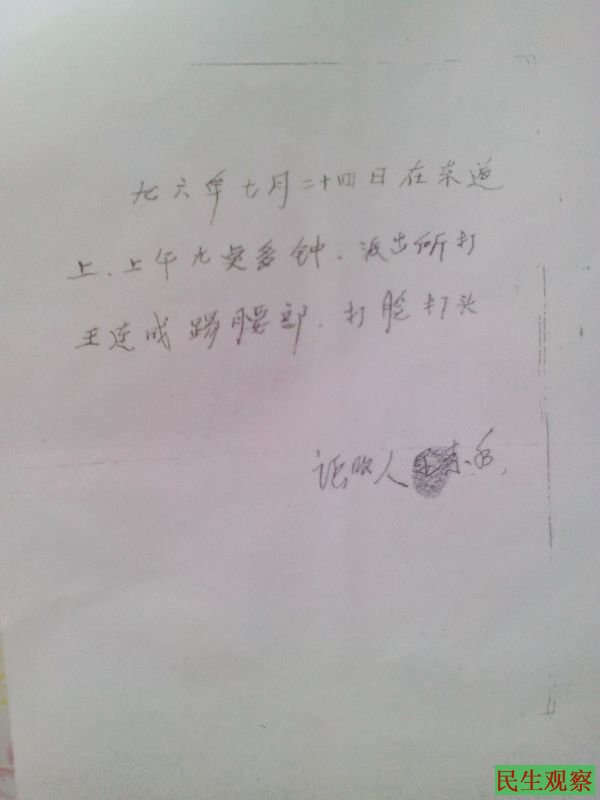 九六年七月二十四日在东道
上、上午九点多钟、派出所打
王连成踢腰部、打脸打头
证明人
民生观察